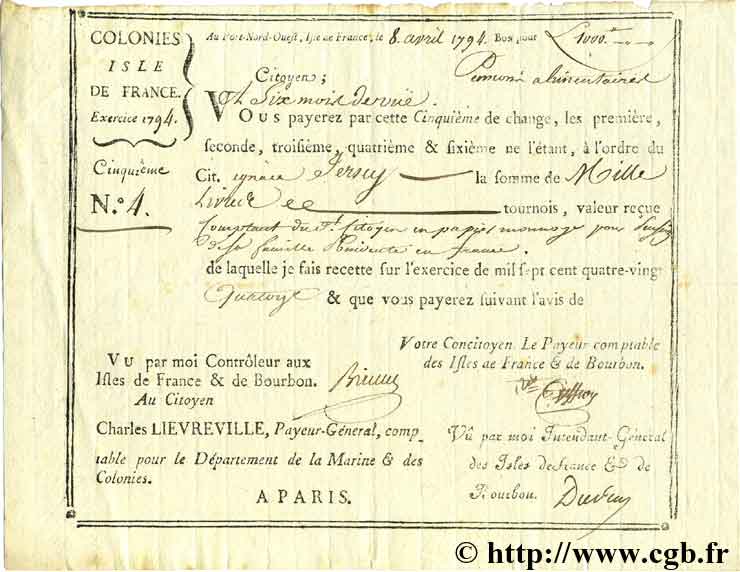 COLONIES
ISLE
DE FRANCE.
Exercice 1794.
Cinquième
N.º 4.
Au Port-Nord-Ouest, Isle de France, le 8. avril 1794. Bon pour L 1000.
Pension alimentaires
Citoyen;
A Six mois de vüe.
Vous payerez par cette Cinquième de change, les première,
seconde, troisième, quatrième & sixième ne l'étant, à l'ordre du
Cit. ignace Jersey la somme de Mille
Livres tournois, valeur reçue
Comptant du d.t Citoyen en papier monnoye pour
de sa famille Residente en france.
de laquelle je fais recette sur l'exercice de mil sept cent quatre-ving
Quatorze & que vous payerez suivant l'avis de
Votre Concitoyen. Le Payeur comptable
des Isles de France & de Bourbon.
VU par moi Contrôleur aux
Isles de France & de Bourbon.
Au Citoyen
Charles LIEVREVILLE, Payeur-Général, comp-
table pour le Département de la Marine & des
Colonies.
A PARIS.
Vû par moi Intendant-Général
des Isles de france & de
Bourbon.
© http://www.cgb.fr